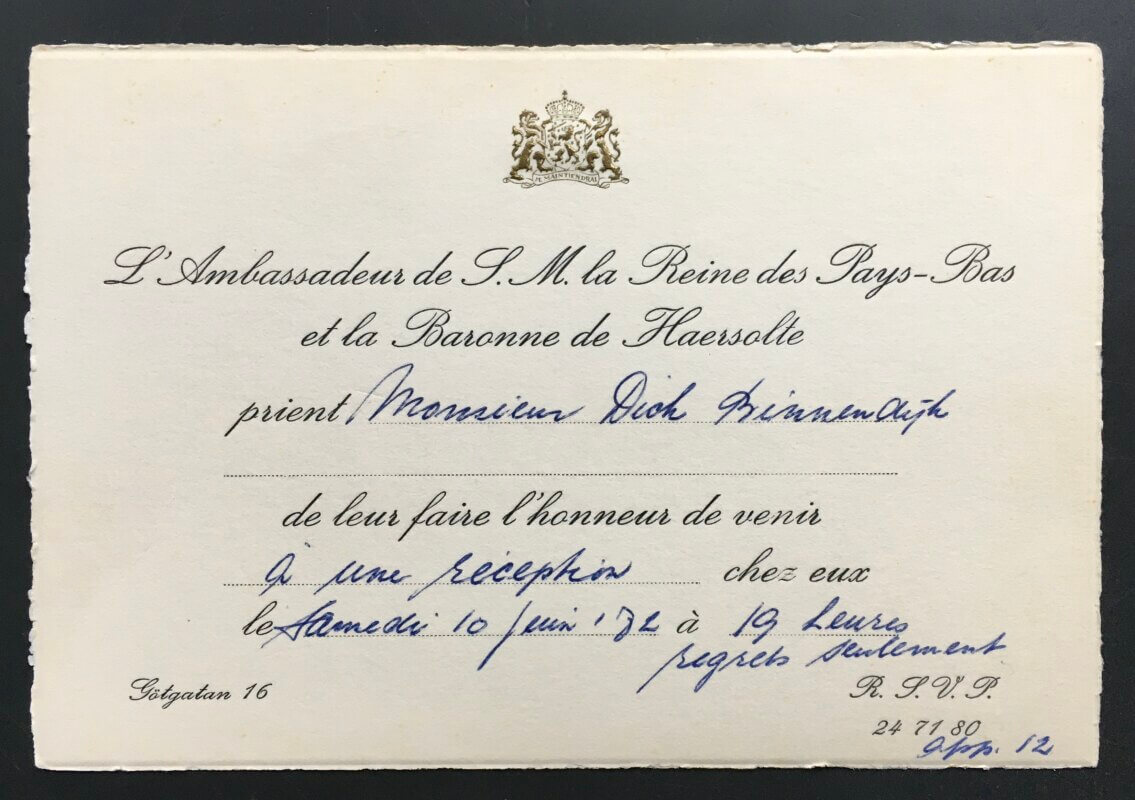 JE MAINTIENDRAI
L'Ambassadeur de S. M. la Reine des Pays-Bas
et la Baronne de Haersolte
prient Monsieur Dick Binnendijk
de leur faire l'honneur de venir
à une réception chez eux
le Samedi 10 juin '72 à 19 heures
regrets seulement
Götgatan 16 R. S. V. P.
24 71 80
app. 12